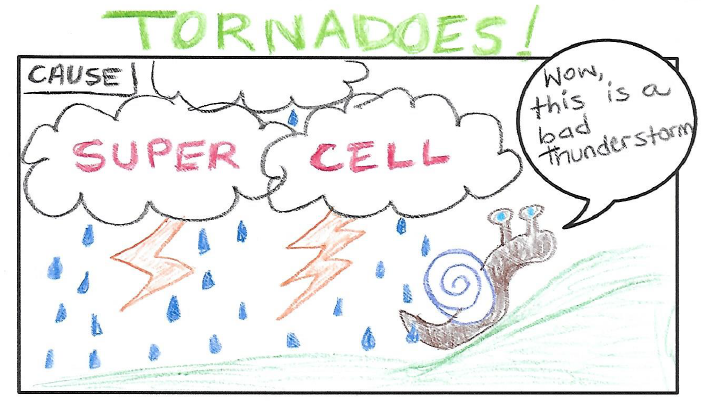 TORNADOES!
CAUSE
SUPER CELL
Wow,
this is a
bad
Thunderstorm